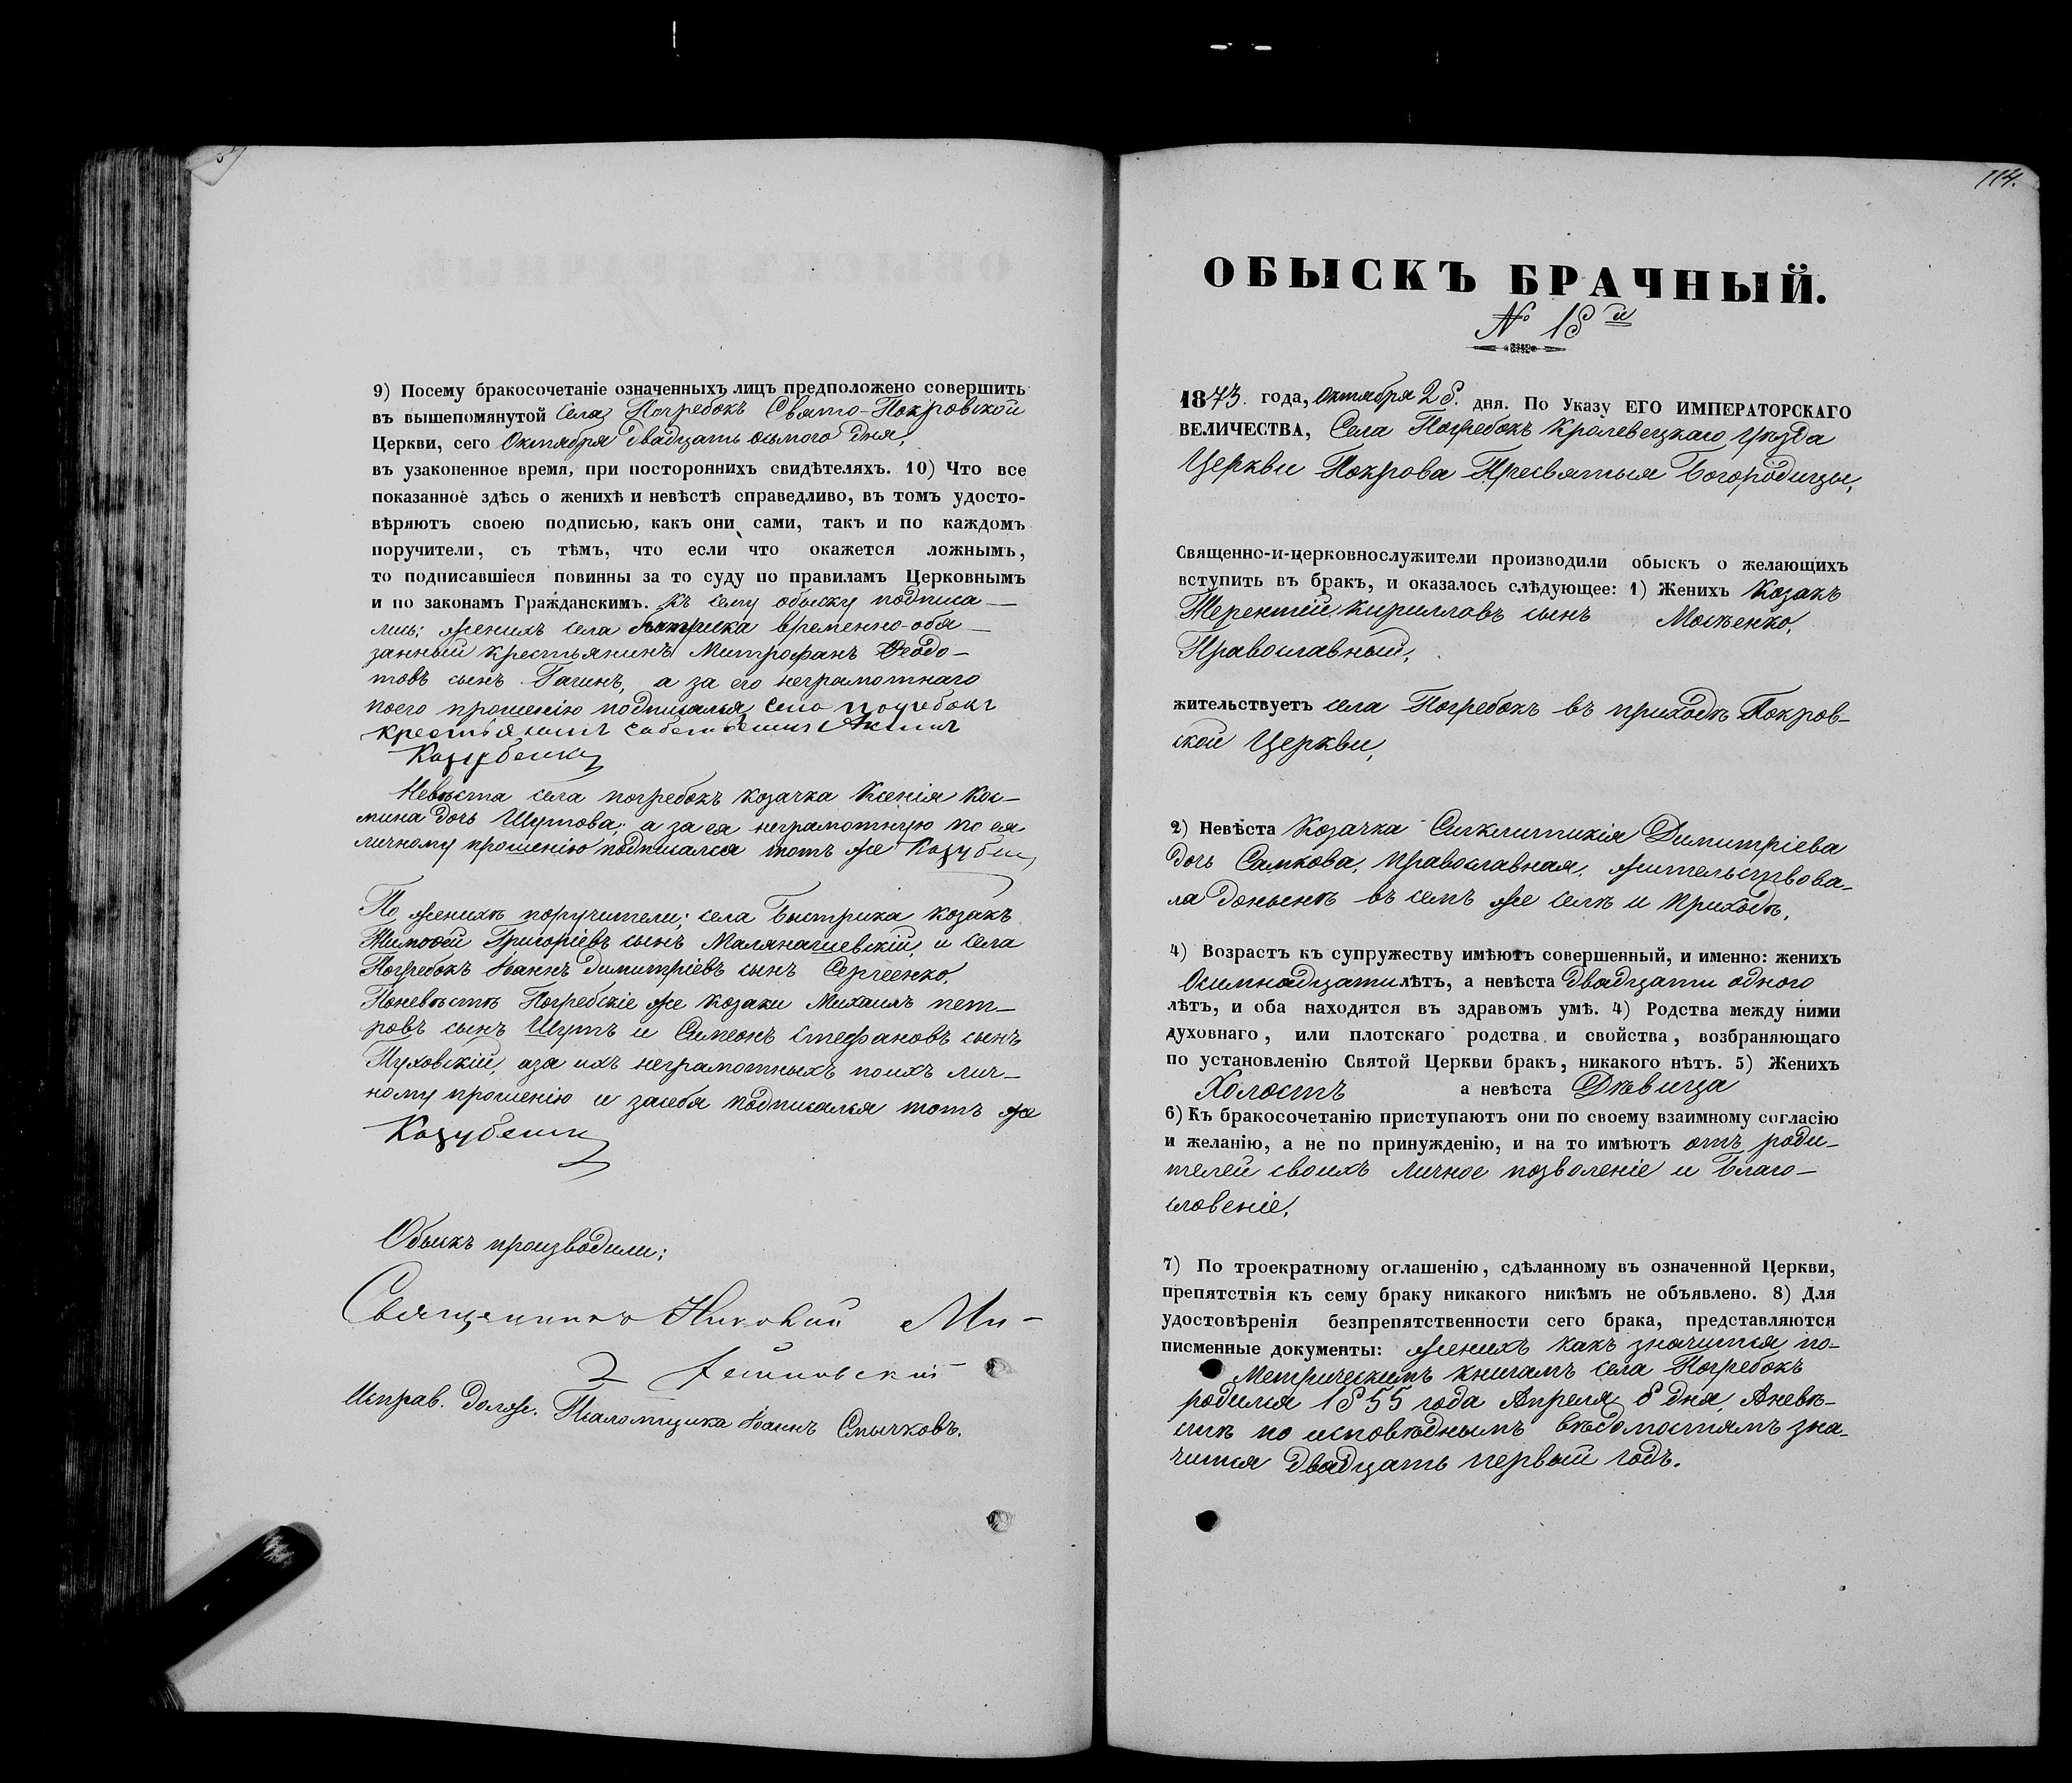 9) Посему бракосочетаніе означенныхъ лицъ предположено совершить
въ вышепомянутой села Погребокъ Свято-Покровской
Церкви, сего Октября двадцать осьмого дня,
въ узаконенное время, при постороннихъ свидѣтеляхъ. 10) Что все
показанное здѣсь о женихѣ и невѣстѣ справедливо, въ томъ удосто-
вѣряютъ своею подписью, какъ они сами, такъ и по каждомъ
поручители, съ тѣмъ, что если что окажется ложнымъ,
то подписавшіеся повинны за то суду по правиламъ Церковнымъ
и по законамъ Гражданскимъ. Къ сему обыску подписа-
лись; женихъ села временно-обя-
занный крестьянинъ Митрофанъ Ѳеодо-
товъ сынъ Гагинъ, а за его неграмотнаго
поего прошенію подписался села погребокъ
крестьянинъ
Козубенко
Невѣста села погребокъ козачка Ксенія Кос-
мина дочь Шутова; а за ея неграмотную по ея
личному прошенію подписался тотъ же Козубенко
По женихѣ поручители; села Быстрика козакъ
Тимоѳей Григоріевъ сынъ и села
Погребокъ Іоаннъ Димитріевъ сынъ Сергеенко,
Поневѣстѣ Погребскіе же козаки Михаилъ пет-
ровъ сынъ Шутъ и Симеонъ Стефановъ сынъ
Глуховскій, аза ихъ неграмотныхъ поихъ лич-
ному прошенію и засебя подписался тотъ же
Козубенко
Обыскъ производили;
Священникъ Николай Ми-
Исправ. долж. Псаломщика Іоаннъ Смычковъ.
114.
ОБЫСКЪ БРАЧНЫЙ.
№ 18й
1873 года, Октября 28. дня. По Указу ЕГО ИМПЕРАТОРСКАГО
ВЕЛИЧЕСТВА, Села Погребокъ Кролевецкаго уѣзда
Церкви Покрова Пресвятыя Богородицы,
Священно-и-церковнослужители производили обыскъ о желающихъ
вступить въ бракъ, и оказалось слѣдующее: 1) Женихъ Козакъ
Терентій Кирилловъ сынъ Мосѣенко,
Православный,
жительствуетъ села Погребокъ въ приходѣ Покров-
ской Церкви,
2) Невѣста Козачка Синклитикія Димитріева
дочь Самкова, православная, жительствова-
ла донынѣ въ семъ же селѣ и приходѣ,
4) Возрастъ къ супружеству имѣютъ совершенный, и именно: женихъ
Осимнадцати лѣтъ, а невѣста двадцати одного
лѣтъ, и оба находятся въ здравомъ умѣ. 4) Родства между ними
духовнаго, или плотскаго родства и свойства, возбраняющаго
по установленію Святой Церкви бракъ, никакого нѣтъ. 5) Женихъ
Холостъ а невѣста Дѣвица
6) Къ бракосочетанію приступаютъ они по своему взаимному согласію
и желанію, а не по принужденію, и на то имѣютъ отъ роди-
телей своихъ личное позволеніе и благо-
словеніе,
7) По троекратному оглашенію, сдѣланному въ означенной Церкви,
препятствія къ сему браку никакого никѣмъ не объявлено. 8) Для
удостовѣренія безпрепятственности сего брака, представляются
писменные документы: женихъ какъ значится по-
Метрическимъ книгамъ села Погребокъ
родился 1855 года Апреля 8 дня, Аневѣ-
стѣ по исповѣднымъ вѣдомостямъ зна-
чится двадцать первый годъ.